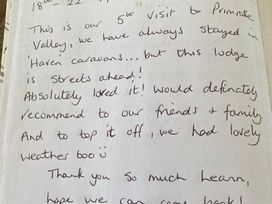 18th - 22
This is our 5th visit to Primrose
Valley, we have always stayed in
Haven caravans... but this lodge
is streets ahead!
Absolutely loved it! would definately
recommend to our friends & family
And to top it off, we had lovely
weather too
Thank you so much Leann,
hope we can come back!